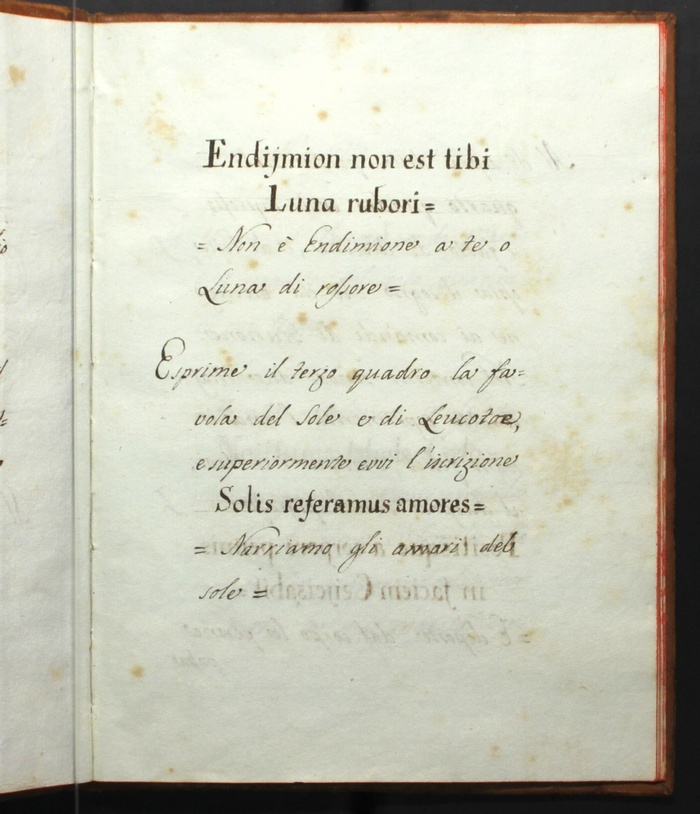 Endijmion non est tibi
Luna rubori=
= Non è Endimione a te o
Luna di rossore =
Esprime il terzo quadro la fa=
vola del Sole e di Leucotoe,
e superiormente evvi l'iscrizione
Solis referamus amores=
= Narriamo gli amori del
sole =